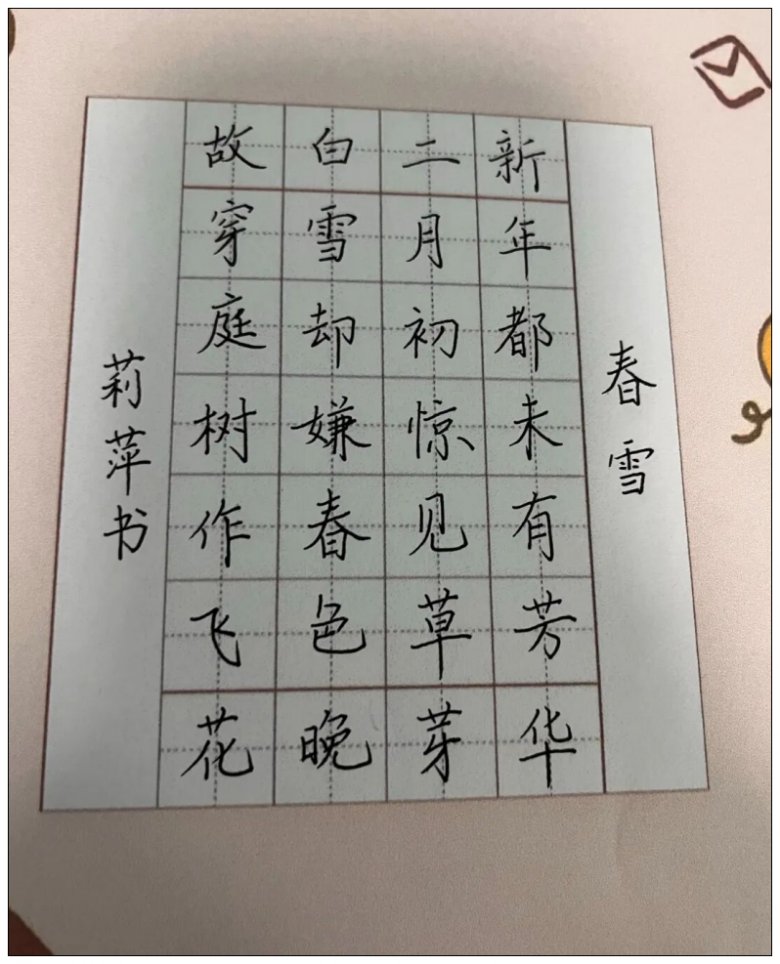 春雪
新年都未有芳华
二月初惊见草芽
白雪却嫌春色晚
故穿庭树作飞花
莉萍书